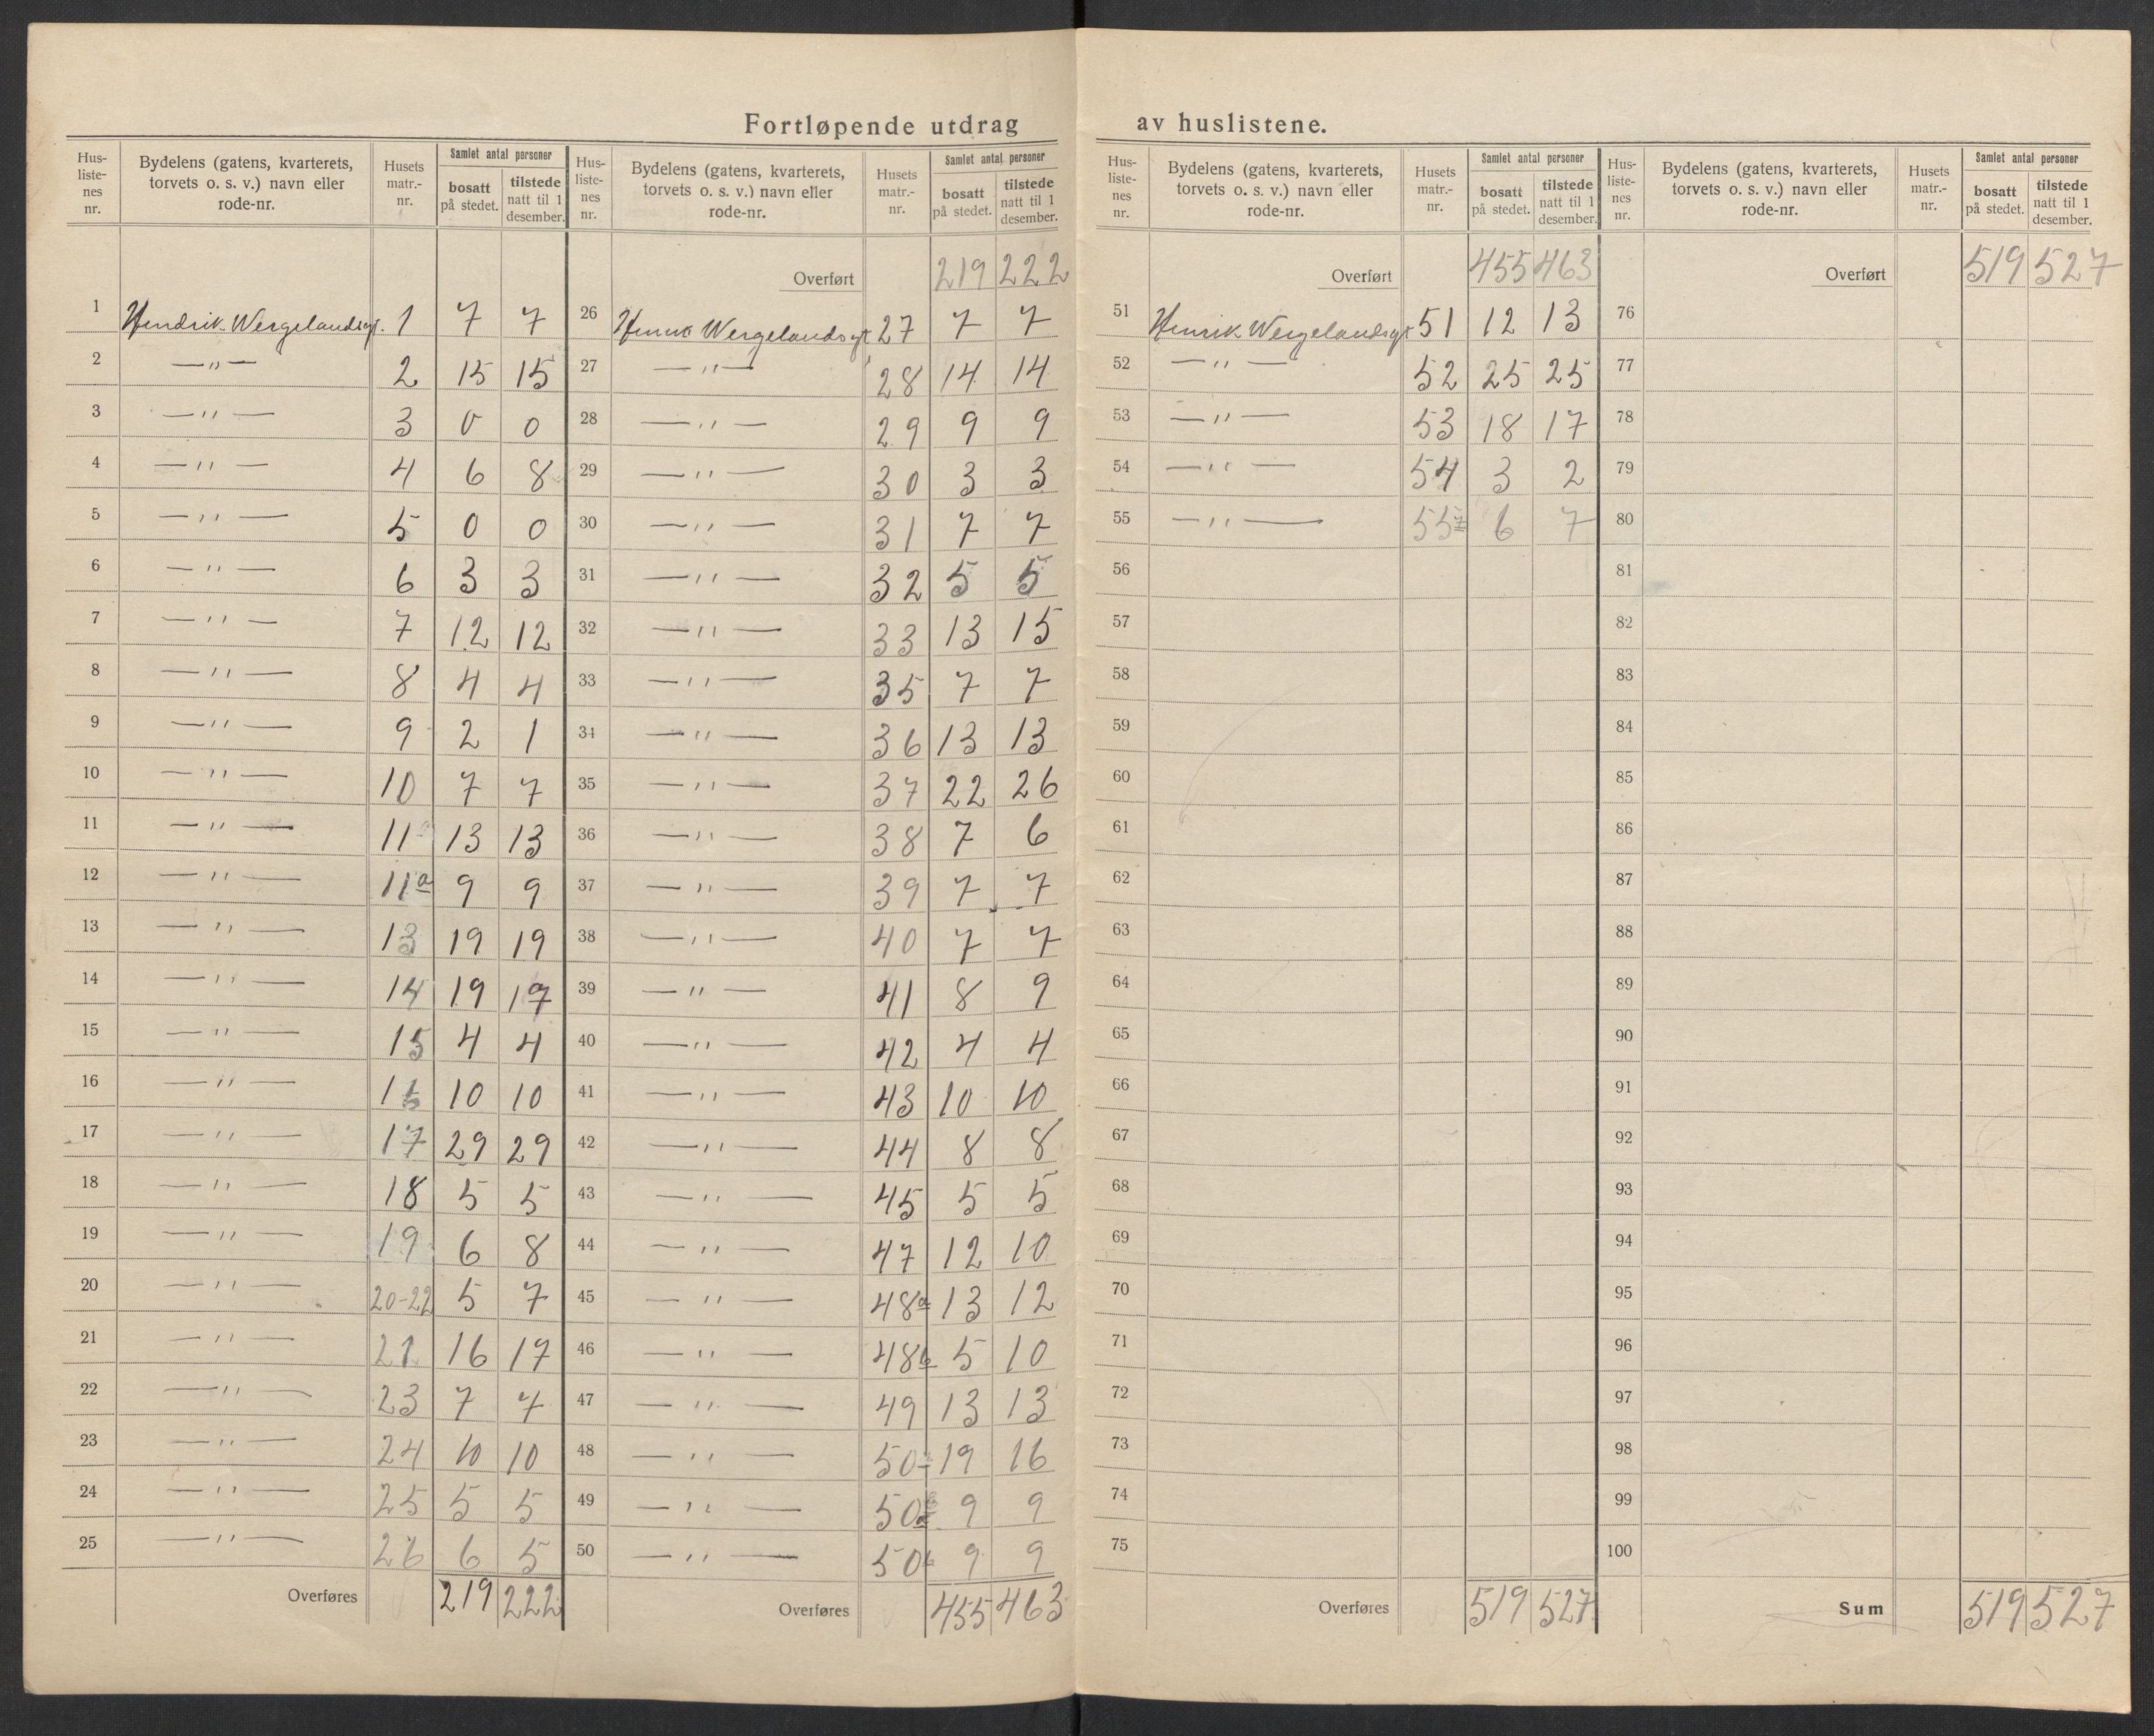 Fortløpende utdrag av huslistene.
Hus-listenes nr. | Bydelens (gatens, kvarterets, torvets o. s. v.) navn eller rode-nr. | Husets matr.-nr. | Samlet antal personer bosatt på stedet. | tilstede natt til 1 desember.
1 Hendrik Wergelandsgt. 1 7 7
2 —"— 2 15 15
3 —"— 3 0 0
4 —"— 4 6 8
5 —"— 5 0 0
6 —"— 6 3 3
7 —"— 7 12 12
8 —"— 8 4 4
9 —"— 9 2 1
10 —"— 10 7 7
11 —"— 11 13 13
12 —"— 11a 9 9
13 —"— 13 19 19
14 —"— 14 19 17
15 —"— 15 4 4
16 —"— 10 10
17 —"— 17 29 29
18 —"— 18 5 5
19 —"— 19 6 8
20 —"— 20-22 5 7
21 —"— 21 16 17
22 —"— 23 7 7
23 —"— 24 10 10
24 —"— 25 5 5
25 —"— 26 6 5
Overføres 219 222
Hus-listenes nr. | Bydelens (gatens, kvarterets, torvets o. s. v.) navn eller rode-nr. | Husets matr.-nr. | Samlet antal personer bosatt på stedet. | tilstede natt til 1 desember.
Overført 219 222
26 Henrik Wergelandsgt 27 7 7
27 —"— 28 14 14
28 —"— 29 9 9
29 —"— 30 3 3
30 —"— 31 7 7
31 —"— 32 5 5
32 —"— 33 13 15
33 —"— 35 7 7
34 —"— 36 13 13
35 —"— 37 22 26
36 —"— 38 7 6
37 —"— 39 7 7
38 —"— 40 7 7
39 —"— 41 8 9
40 —"— 42 4 4
41 —"— 43 10 10
42 —"— 44 8 8
43 —"— 45 5 5
44 —"— 47 12 10
45 —"— 48a 13 12
46 —"— 48b 5 10
47 —"— 49 13 13
48 —"— 50 19 16
49 —"— 50a 9 9
50 —"— 50b 9 9
Overføres 455 463
Hus-listenes nr. | Bydelens (gatens, kvarterets, torvets o. s. v.) navn eller rode-nr. | Husets matr.-nr. | Samlet antal personer bosatt på stedet. | tilstede natt til 1 desember.
Overført 455 463
51 Henrik Wergelandsgt 51 12 13
52 —"— 52 25 25
53 —"— 53 18 17
54 —"— 54 3 2
55 —"— 55 6 7
56
57
58
59
60
61
62
63
64
65
66
67
68
69
70
71
72
73
74
75
Overføres 519 527
Hus-listenes nr. | Bydelens (gatens, kvarterets, torvets o. s. v.) navn eller rode-nr. | Husets matr.-nr. | Samlet antal personer bosatt på stedet. | tilstede natt til 1 desember.
Overført 519 527
76
77
78
79
80
81
82
83
84
85
86
87
88
89
90
91
92
93
94
95
96
97
98
99
100
Sum 519 527